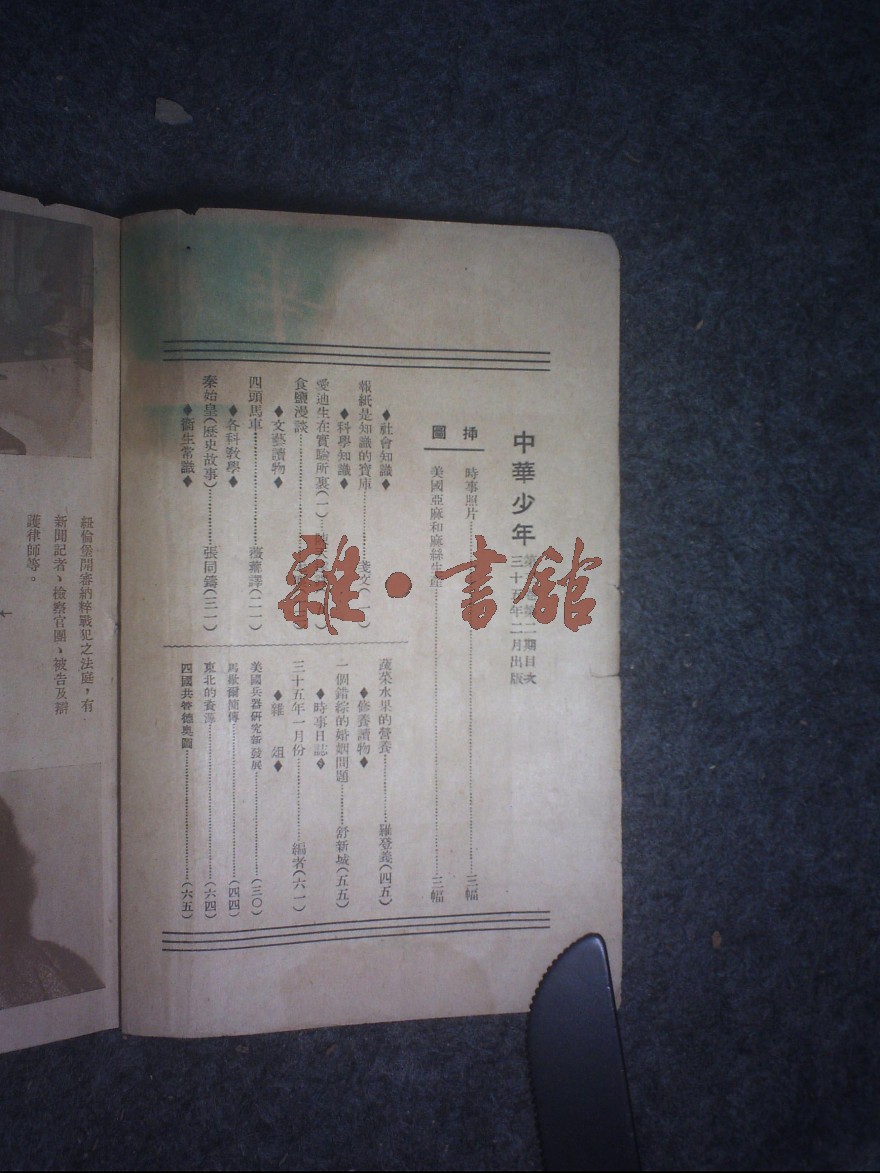 中華少年
第 第二期目次
三十五年二月出版
插圖
時事照片……三幅
美國亞麻和麻絲生產……三幅
◆社會知識◆
報紙是知識的寶庫……文(一)
◆科學知識◆
愛迪生在實驗所裏(一)
食鹽漫談
◆文藝讀物◆
四頭馬車……薇蕪譯(二一)
◆各科教學◆
秦始皇(歷史故事)……張同鑄(三一)
◆衞生常識◆
蔬菜水果的營養……羅登義(四五)
◆修養讀物◆
一個錯綜的婚姻問題……舒新城(五五)
◆時事日誌◆
三十五年一月份……編者(六一)
◆雜 俎◆
美國兵器研究新發展……(三〇)
馬歇爾 傳……(四四)
東北的資源……(六四)
四國共管德奧圖……(六五)
紐倫堡開審納粹戰犯之法庭，有
新聞記者、檢察官團、被告及辯
護律師等。
雜·書館